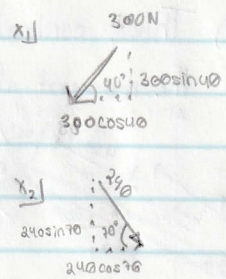 x₁⌋ 300N
40° 300sin40
300cos40
x₂⌋ 240
240sin70 70°
240cos70